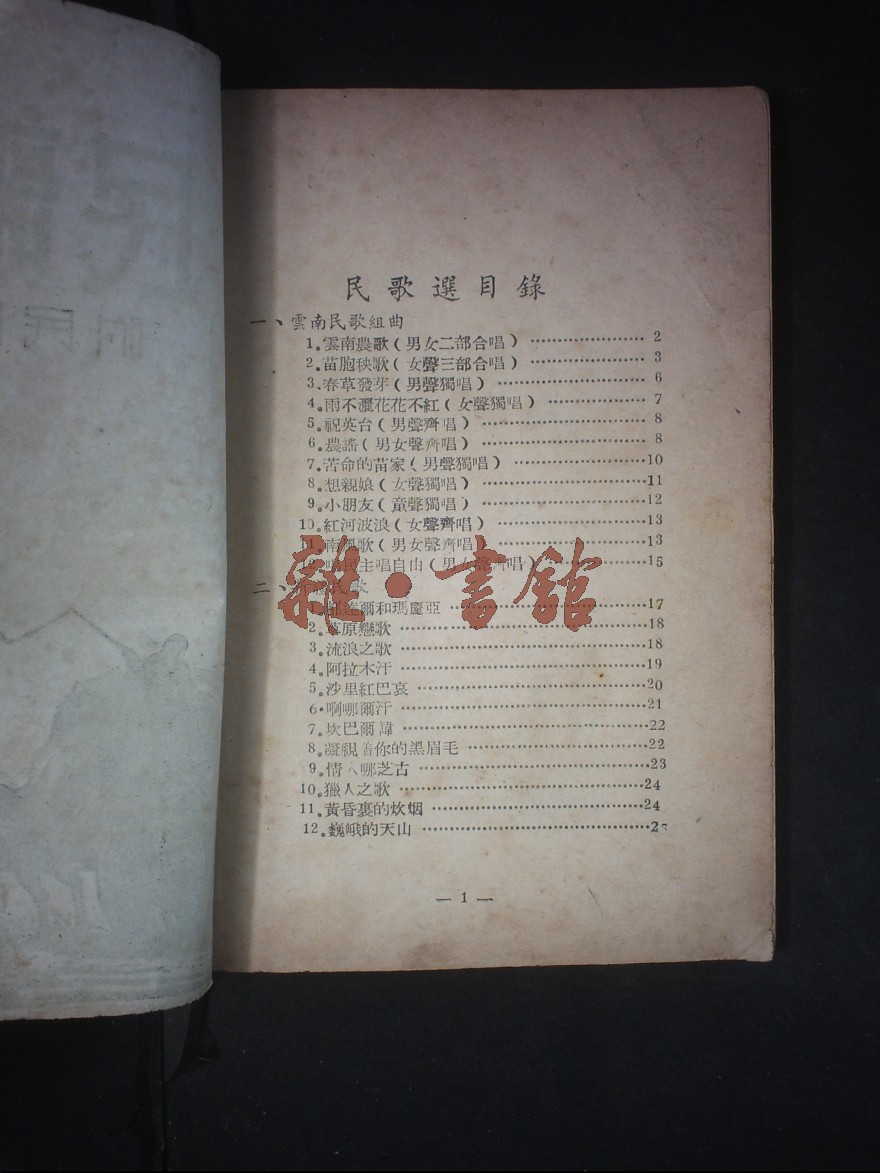 民歌選目錄
一、雲南民歌組曲
1。雲南農歌(男女二部合唱)………………2
2。苗胞秧歌(女聲三部合唱)………………3
3。春草發芽(男聲獨唱)………………6
4。雨不灑花花不紅(女聲獨唱)………………7
5。祝英台(男聲齊唱)………………8
6。農謠(男女聲齊唱)………………8
7。苦命的苗家(男聲獨唱)………………10
8。想親娘(女聲獨唱)………………11
9。小朋友(童聲獨唱)………………12
10。紅河波浪(女聲齊唱)………………13
11。南風歌(男女聲齊唱)………………13
唱民主唱自由(男女聲齊唱)………………15
雜·書館
二、民歌
達爾和瑪麗亞………………17
2。草原戀歌………………18
3。流浪之歌………………18
4。阿拉木汗………………19
5。沙里紅巴哀………………20
6。啊哪爾汗………………21
7。坎巴爾諱………………22
8。凝視着你的黑眉毛………………22
9。情人哪芝古………………23
10。獵人之歌………………24
11。黃昏裏的炊烟………………24
12。巍峨的天山………………2
— 1 —